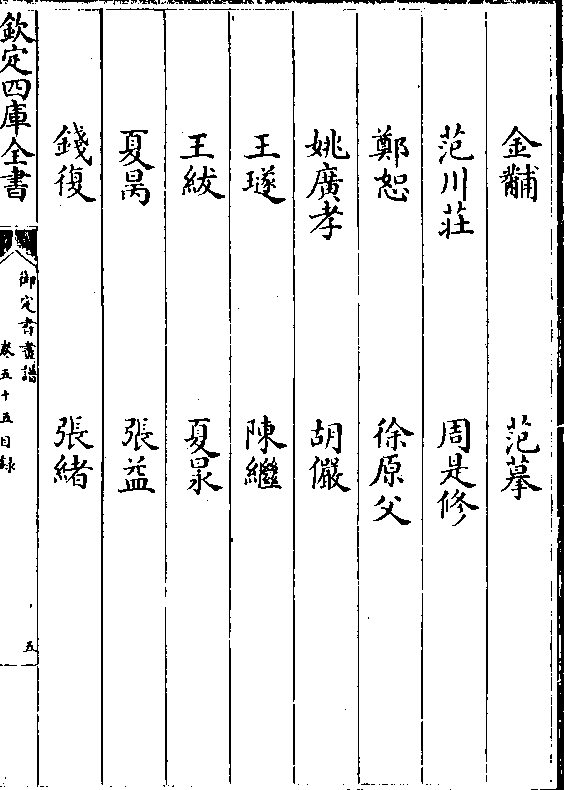 金黼 范摹
范川莊 周是修
鄭恕 徐原父
姚廣孝 胡儼
王璲 陳繼
王紱 夏昺
夏昺 張益
錢復 張緒
欽定四庫全書
御定書畫譜
卷五十五目録
五